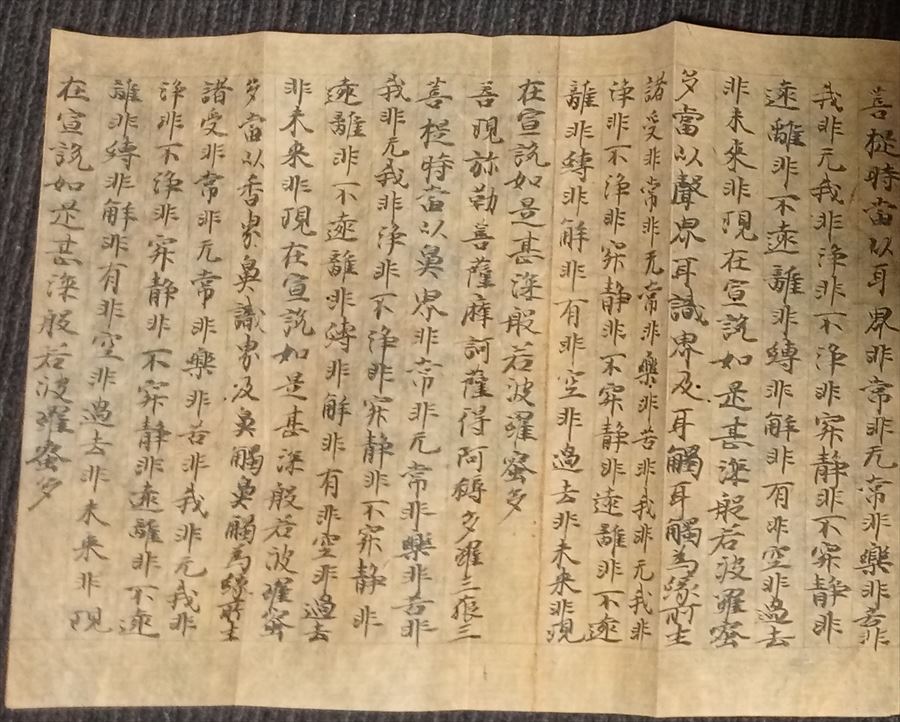 菩提時當以耳界非常非无常非樂非苦非
我非无我非淨非不淨非寂静非不寂静非
遠離非不遠離非縛非解非有非空非過去
非未来非現在宣說如是甚深般若波羅蜜
多當以聲界耳識界及耳觸耳觸為緣所生
諸受非常非无常非樂非苦非我非无我非
淨非不淨非寂静非不寂静非遠離非不遠
離非縛非解非有非空非過去非未来非現
在宣說如是甚深般若波羅蜜多
善現弥勒菩薩摩訶薩得阿耨多羅三藐三
菩提時當以鼻界非常非无常非樂非苦非
我非无我非淨非不淨非寂静非不寂静非
遠離非不遠離非縛非解非有非空非過去
非未来非現在宣說如是甚深般若波羅蜜
多當以香界鼻識界及鼻觸鼻觸為緣所生
諸受非常非无常非樂非苦非我非无我非
淨非不淨非寂静非不寂静非遠離非不遠
離非縛非解非有非空非過去非未来非現
在宣說如是甚深般若波羅蜜多